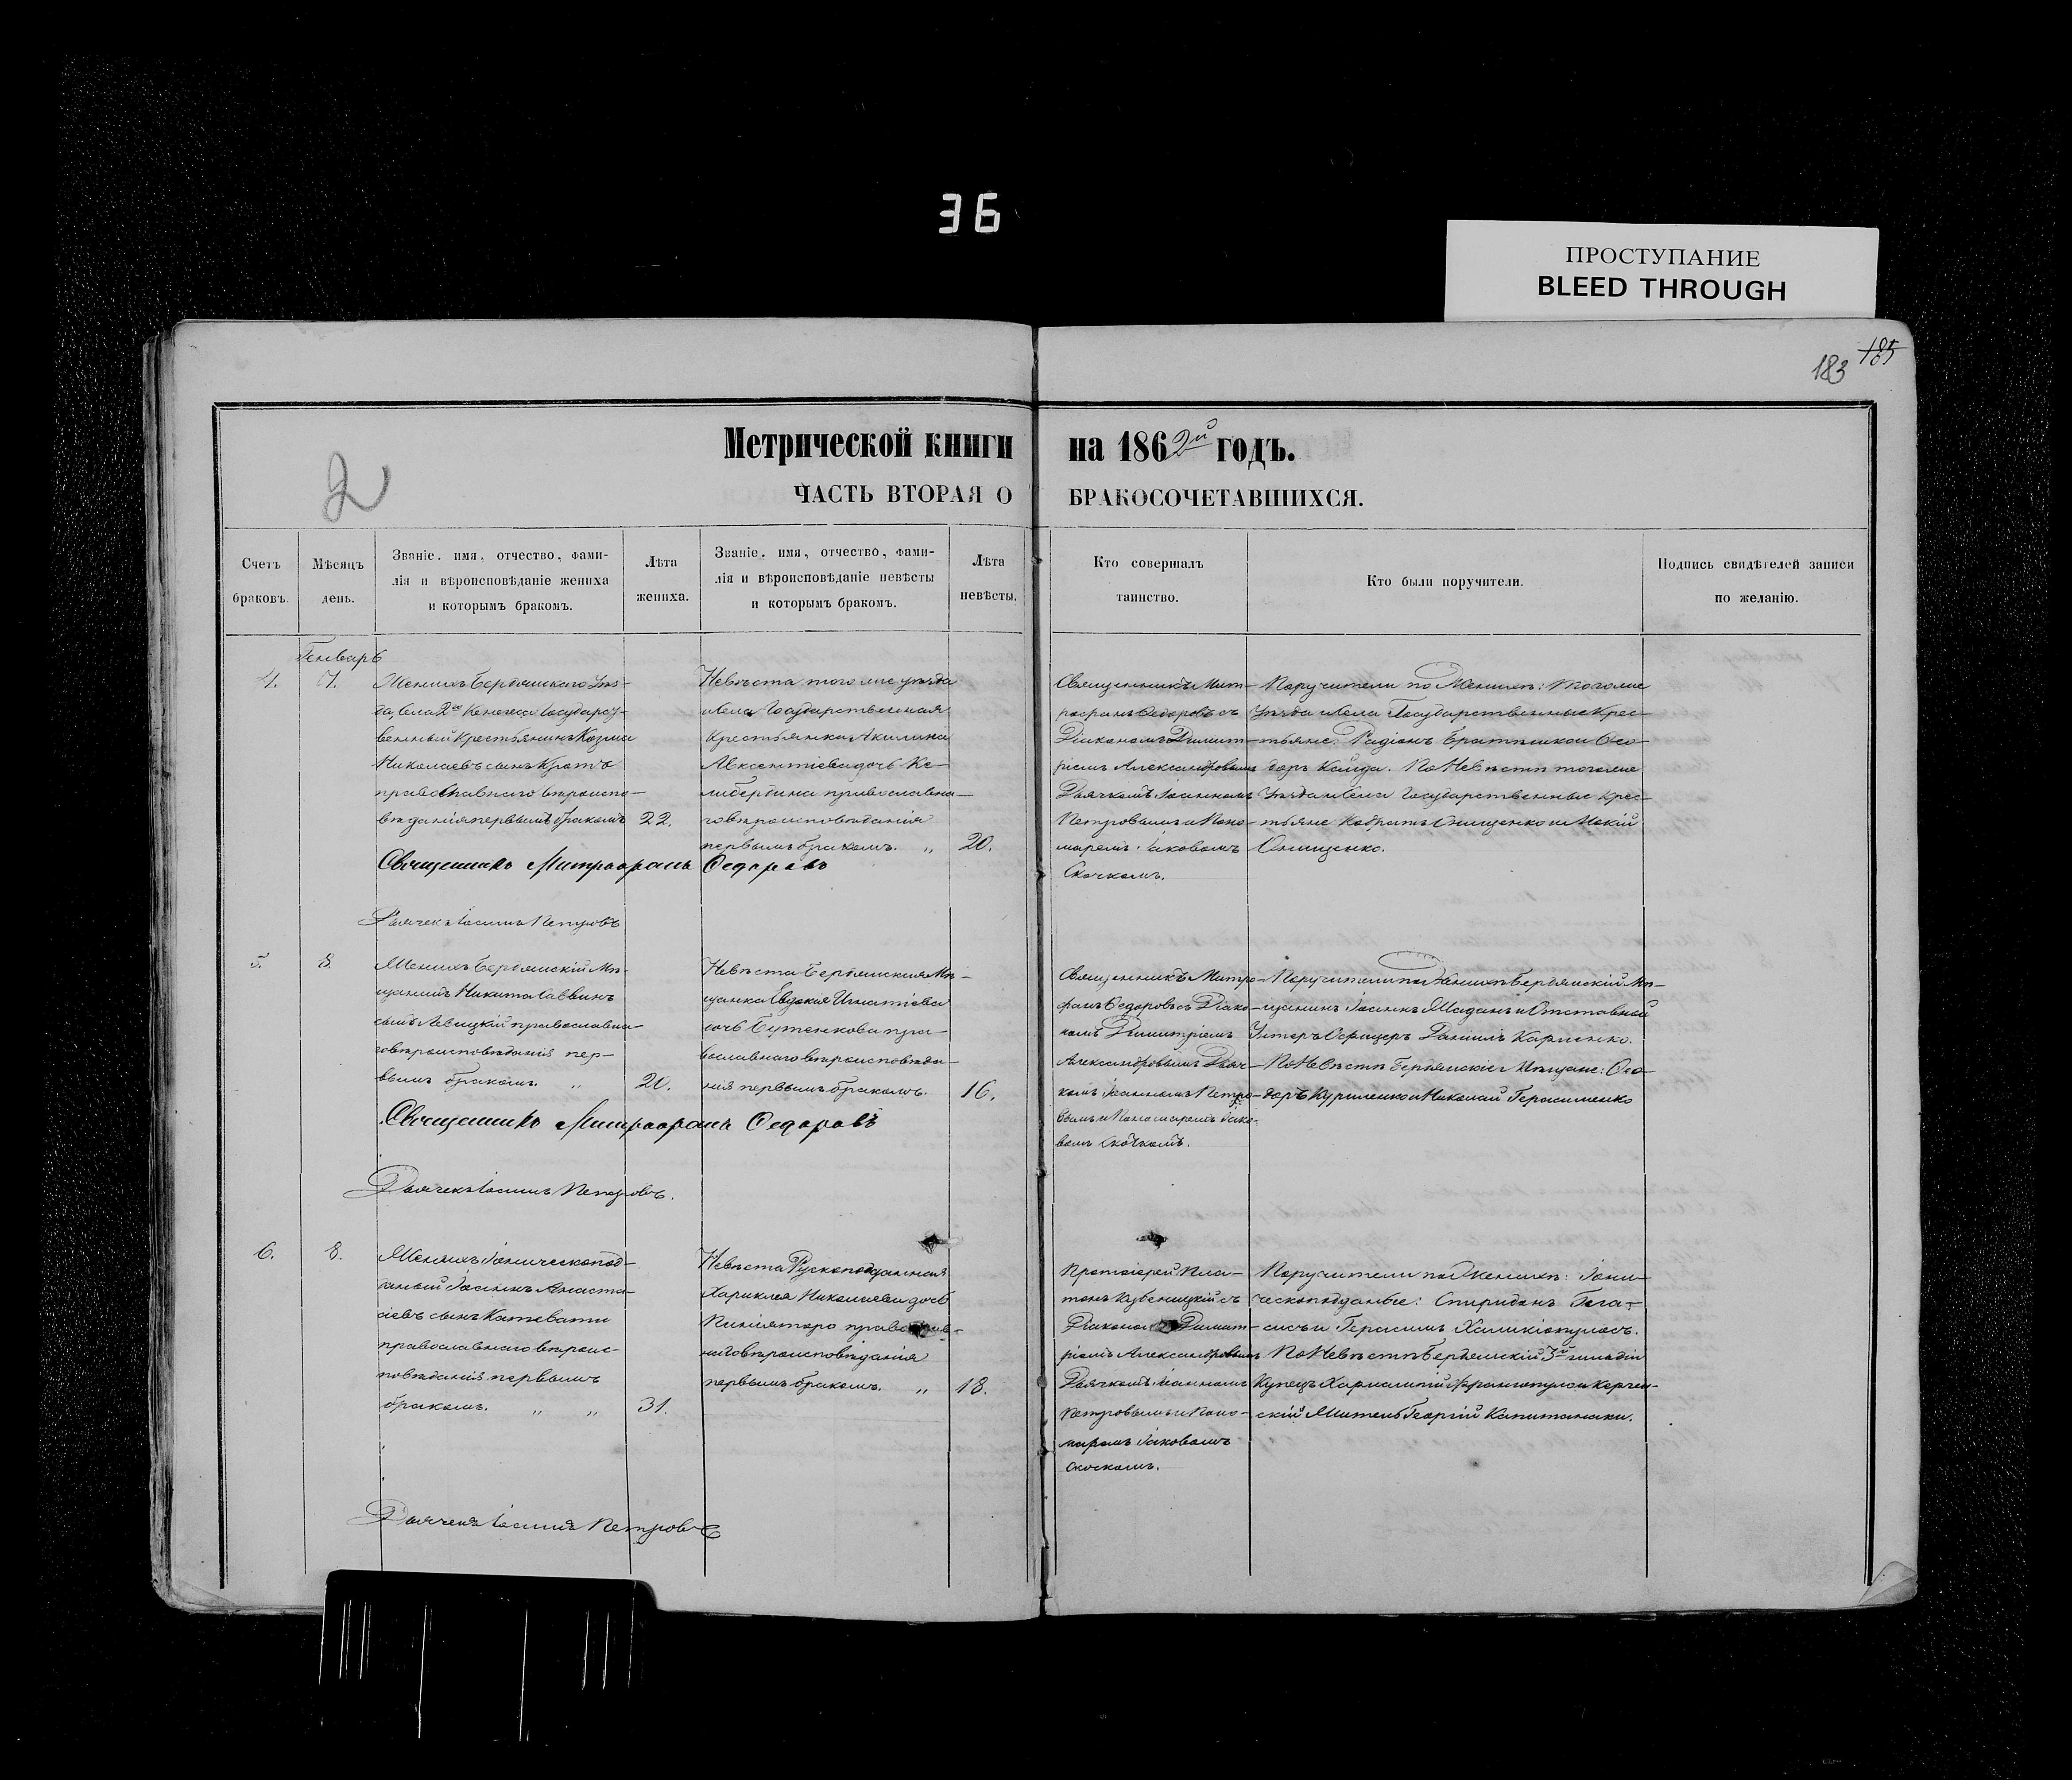 36
ПРОСТУПАНИЕ
BLEED THROUGH
183 185
2
Метрической книги на 1862й годъ.
ЧАСТЬ ВТОРАЯ О БРАКОСОЧЕТАВШИХСЯ.
Счетъ
браковъ.
Мѣсяцъ
день.
Званіе, имя, отчество, фами-
лія и вѣроисповѣданіе жениха
и которымъ бракомъ.
Лѣта
жениха.
Званіе, имя, отчество, фами-
лія и вѣроисповѣданіе невѣсты
и которымъ бракомъ.
Лѣта
невѣсты.
Кто совершалъ
таинство.
Кто были поручители.
Подпись свидѣтелей записи
по желанію.
Генварь
4.
7.
Женихъ Бердянскаго Уѣз-
да, села Государст-
венный Крестьянинъ Козма
Николаевъ сынъ
православнаго вѣроиспо-
вѣданія первымъ бракомъ
22.
Невѣста того же уѣзда
и села Государственная
Крестьянка Акилина
Авксентіева дочь Ке-
либердина православна-
го вѣроисповѣданія
первымъ бракомъ. „
20.
Священникъ Мит-
рофанъ Ѳедоровъ съ
Діакономъ Димит-
ріемъ Александровымъ
Дьячкомъ Іоанномъ
Петровымъ и Поно-
маремъ Іаковомъ
Скочкомъ.
Поручители по Женихѣ: того же
Уѣзда и села Государственные Крес-
тьяне: Радіонъ и Ѳео-
доръ Кайда. По Невѣстѣ того же
Уѣзда и села Государственные Крес-
тьяне Онищенко и Мокій
Онищенко.
Священникъ Митрофанъ Ѳедоровъ
Дьячекъ Іоаннъ Петровъ
5.
8.
Женихъ Бердянскій Мѣ-
щанинъ Никита Саввинъ
сынъ Левицкій православна-
го вѣроисповѣданія пер-
вымъ бракомъ. „
20.
Невѣста Бердянская Мѣ-
щанка Евдокия Игнатіева
дочь Бутенкова пра-
вославнаго вѣроисповѣда-
нія первымъ бракомъ.
16.
Священникъ Митро-
фанъ Ѳедоровъ съ Діако-
номъ Димитріемъ
Александровымъ Дьяч-
комъ Іоанномъ Петро-
вымъ и Пономаремъ Іако-
вомъ Скочкомъ.
Поручители по Женихѣ Бердянскій Мѣ-
щанинъ Іоаннъ Маданъ и Отставной
Унтеръ Офицеръ Даніилъ Карпенко.
По Невѣстѣ Бердянскіе Мѣщане: Ѳео-
доръ Куриленко и Николай Герасименко
Священникъ Митрофанъ Ѳедоровъ
Дьячекъ Іоаннъ Петровъ.
6.
8.
Женихъ Іоническопод-
данный Іоаннъ Анаста-
сіевъ сынъ Катевати
православнаго вѣроис-
повѣданія первымъ
бракомъ. „ „
31.
Невѣста Рускоподданная
Хариклея Николаева дочь
православ-
наго вѣроисповѣданія
первымъ бракомъ. „
18.
Протоіерей Пла-
тонъ съ
Діакономъ Димит-
ріемъ Александровымъ
Дьячкомъ Іоанномъ
Петровымъ и Поно-
маремъ Іаковомъ
Скочкомъ.
Поручители по Женихѣ: Іони-
ческоподданые: Спиридонъ
и Герасимъ Халикіопулосъ.
По Невѣстѣ Бердянскій 3й гильдіи
Купецъ Харлампій Франгопуло и Керчен-
скій Житель Георгій Капитанаки.
Дьячекъ Іоаннъ Петровъ